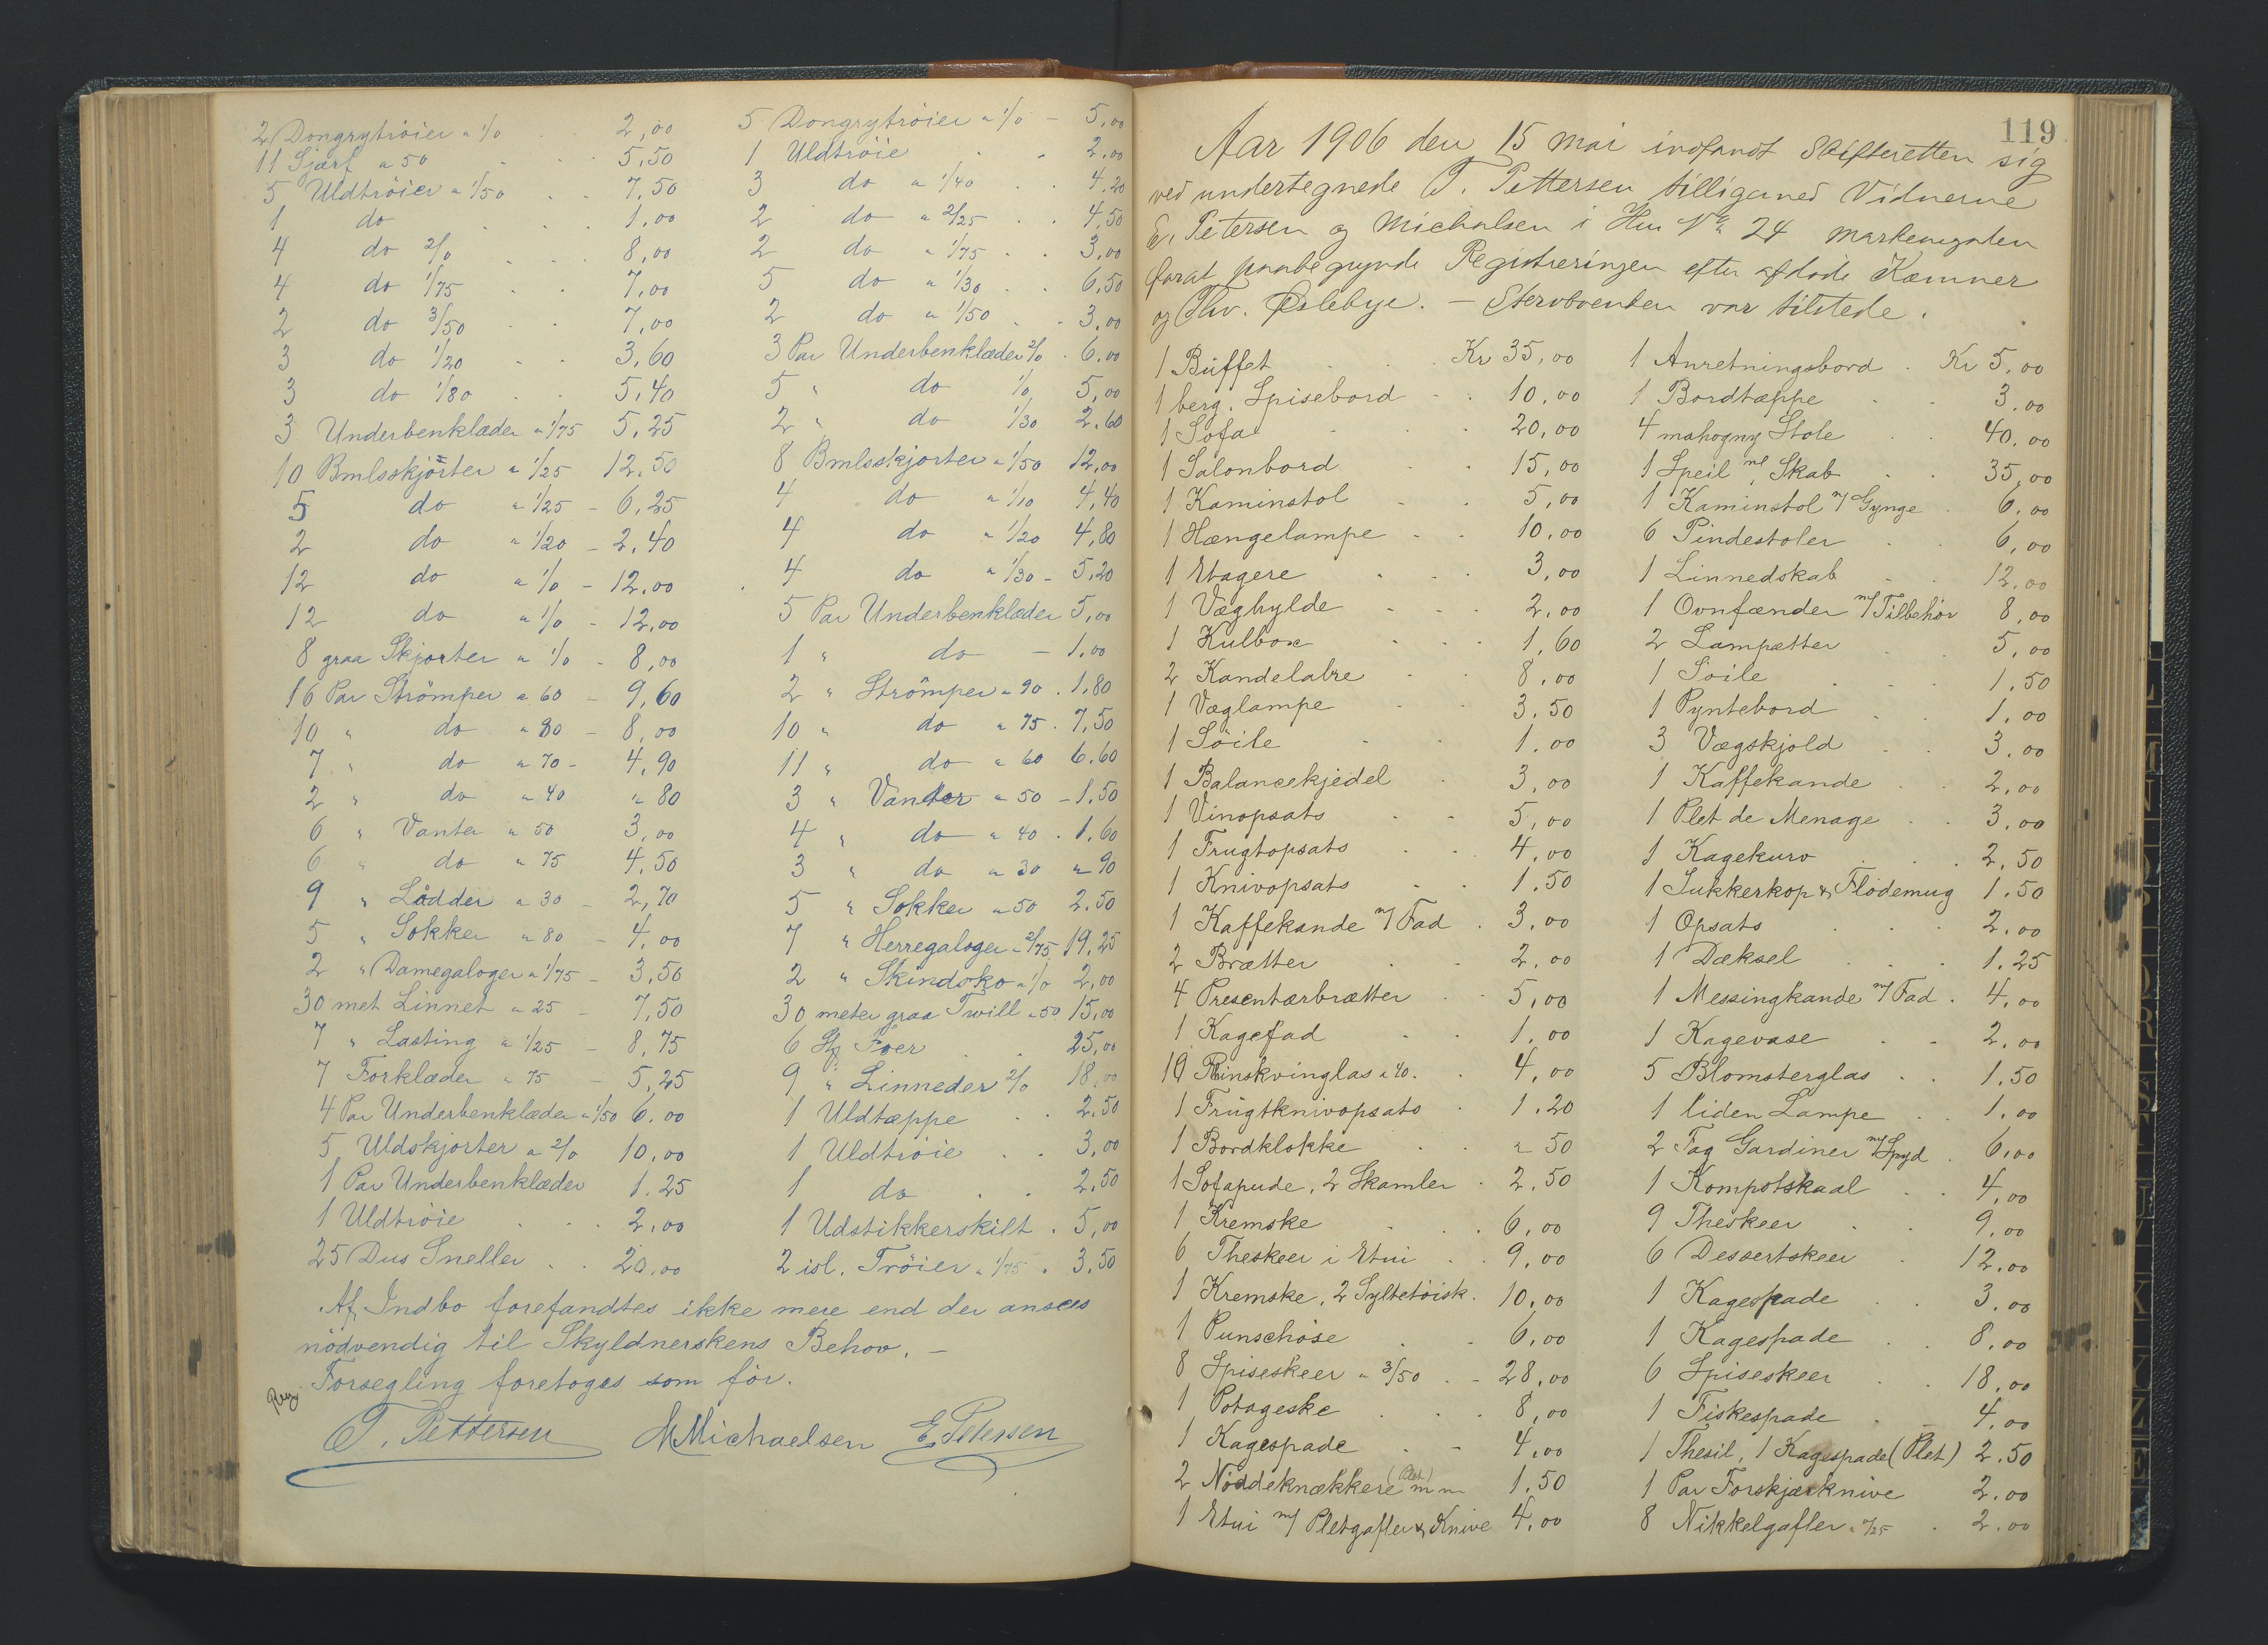 2 Dongrytröier a 1/0 . . 2,00
11 Sjærf a 50 . . 5,50
5 Uldtröier a 1/50 . . 7,50
1 do . . . 1,00
4 do 2/0 . . . 8,00
4 do 1/75 . . 7,00
2 do 3/50 . . 7,00
3 do 1/20 . . 3,60
3 do 1/80 . . 5,40
3 Underbenklæder a 1/75 5,25
10 Bmlsskjorter a 1/25 12,50
5 do a 1/25 - 6,25
2 do a 1/20 - 2,40
12 do a 1/0 - 12,00
12 do a 1/0 - 12,00
8 graa Skjorter a 1/0 - 8,00
16 Par Strömper a 60 - 9,60
10 " do a 80 - 8,00
7 " do a 70 - 4,90
2 " do a 40 " 80
6 " Vanter a 50 3,00
6 " do a 75 4,50
9 " Lådder a 30 - 2,70
5 " Sokker a 80 - 4,00
2 " Damegaloger a 1/75 - 3,50
30 met Linnet a 25 - 7,50
7 " Lasting a 1/25 - 8,75
7 Forklæder a 75 - 5,25
4 Par Underbenklæder a 1/50 6,00
5 Uldskjorter a 2/0 10,00
1 Par Underbenklæder 1.25
1 Uldtröie . . . 2,00
25 Dus Sneller . . 20,00
5 Dongrytröier a 1/0 - 5,00
1 Uldtröie . . 2,00
3 do a 1/40 . . 4,20
2 do a 2/25 . . 4,50
2 do a 1/75 . . 3,00
5 do a 1/30 . . 6,50
2 do a 1/50 . . 3,00
3 Par Underbenklæder 2/0 . 6,00
5 " do 1/0 5,00
2 " do 1/30 2.60
8 Bmlsskjorter a 1/50 12,00
4 do a 1/10 4,40
4 do a 1/20 4,80
4 do a 1/30 - 5,20
5 Par Underbenklæder 5,00
1 " do - 1.00
2 " Strömper a 90 . 1.80
10 " do a 75 . 7,50
11 " do a 60 6.60
3 " Vanter a 50 - 1.50
4 " do a 40 . 1.60
3 " do a 30 " 90
5 " Sokker a 50 2.50
7 " Herregaloger a 2/75 19,25
2 " Skindsko a 1/0 2,00
30 meter graa Twill a 50 15,00
6 St Foer . . 25,00
9 " Linneder 2/0 18,00
1 Uldtæppe . . 2.50
1 Uldtröie . . 3,00
1 do . . 2,50
1 Udstikkerskilt . 5,00
2 isl. Tröier a 1/75 . 3,50
Af Indbo forefandtes ikke mere end der ansees
nödvendig til Skyldnerskens Behov. -
Forsegling foretoges som för.
T. Pettersen M Michaelsen E. Petersen
119
Aar 1906 den 15 mai indfandt Skifteretten sig
ved undertegnede T. Pettersen tilligemed Vidnerne
E. Petersen og Michalsen i Hus No 24 Markevegaten
forat paabegynde Registreringen efter afdöde Kæmner
og Thv. Øslebye. - Stervboenken var tilstede.
1 Buffet . . Kr 35,00
1 berg. Spisebord . . 10,00
1 Sofa . . 20,00
1 Salonbord . . 15,00
1 Kaminstol . . 5,00
1 Hængelampe . . 10,00
1 Etagere . . . 3,00
1 Væghylde . . . 2,00
1 Kulbox . . 1,60
2 Kandelabre . . 8,00
1 Væglampe . . 3.50
1 Söile . . 1.00
1 Balancekjedel . 3,00
1 Vinopsats . . 5,00
1 Frugtopsats . . 4.00
1 Knivopsats . . 1.50
1 Kaffekande m/ Fad . 3,00
2 Brætter . . 2,00
4 Presentærbrætter . . 5,00
1 Kagefad . . 1,00
10 Rhinskvinglas a 40 . 4,00
1 Frugtknivopsats . 1.20
1 Bordklokke . " 50
1 Sofapude, 2 Skamler . 2.50
1 Kremske . . . 6,00
6 Theskeer i Etui . . 9,00
1 Kremske, 2 Syltetöisk. 10,00
1 Punschöse . . 6,00
8 Spiseskeer a 3/50 . - 28,00
1 Potageske . . . 8,00
1 Kagespade . - 4,00
2 Nöddeknækkere (Plet) m m 1.50
1 Etui m/ Pletgafler & Knive 4,00
1 Anretningsbord . Kr 5,00
1 Bordtæppe . . 3,00
4 mahogny Stole . . 40,00
1 Speil m/ Skab . . 35,00
1 Kaminstol m/ Gynge . 6,00
6 Pindestoler . . 6,00
1 Linnedskab . . 12,00
1 Ovnfænder m/ Tilbehör 8,00
2 Lampetter . . 5,00
1 Söile . . . 1.50
1 Pyntebord . . 1.00
3 Vægskjold . . 3.00
1 Kaffekande . . 2,00
1 Plet de Menage . . 3,00
1 Kagekurv . . . 2,50
1 Sukkerkop & Flödemug 1.50
1 Opsats . . . 2.00
1 Dæksel . . . 1.25
1 Messingkande m/ Fad . 4,00
1 Kagevase . . 2,00
5 Blomsterglas . . 1.50
1 liden Lampe . . 1.00
2 Fag Gardiner m/ Spyd . 6,00
1 Kompotskaal . . 4,00
9 Theskeer . . 9,00
6 Dessertskeer . 12,00
1 Kagespade . . 3,00
1 Kagespade . . 8,00
6 Spiseskeer . . 18,00
1 Fiskespade . . 4,00
1 Thesil, 1 Kagespade (Plet) 2.50
1 Par Forskjærknive 2.00
8 Nikkelgafler a "/25 . 2.00